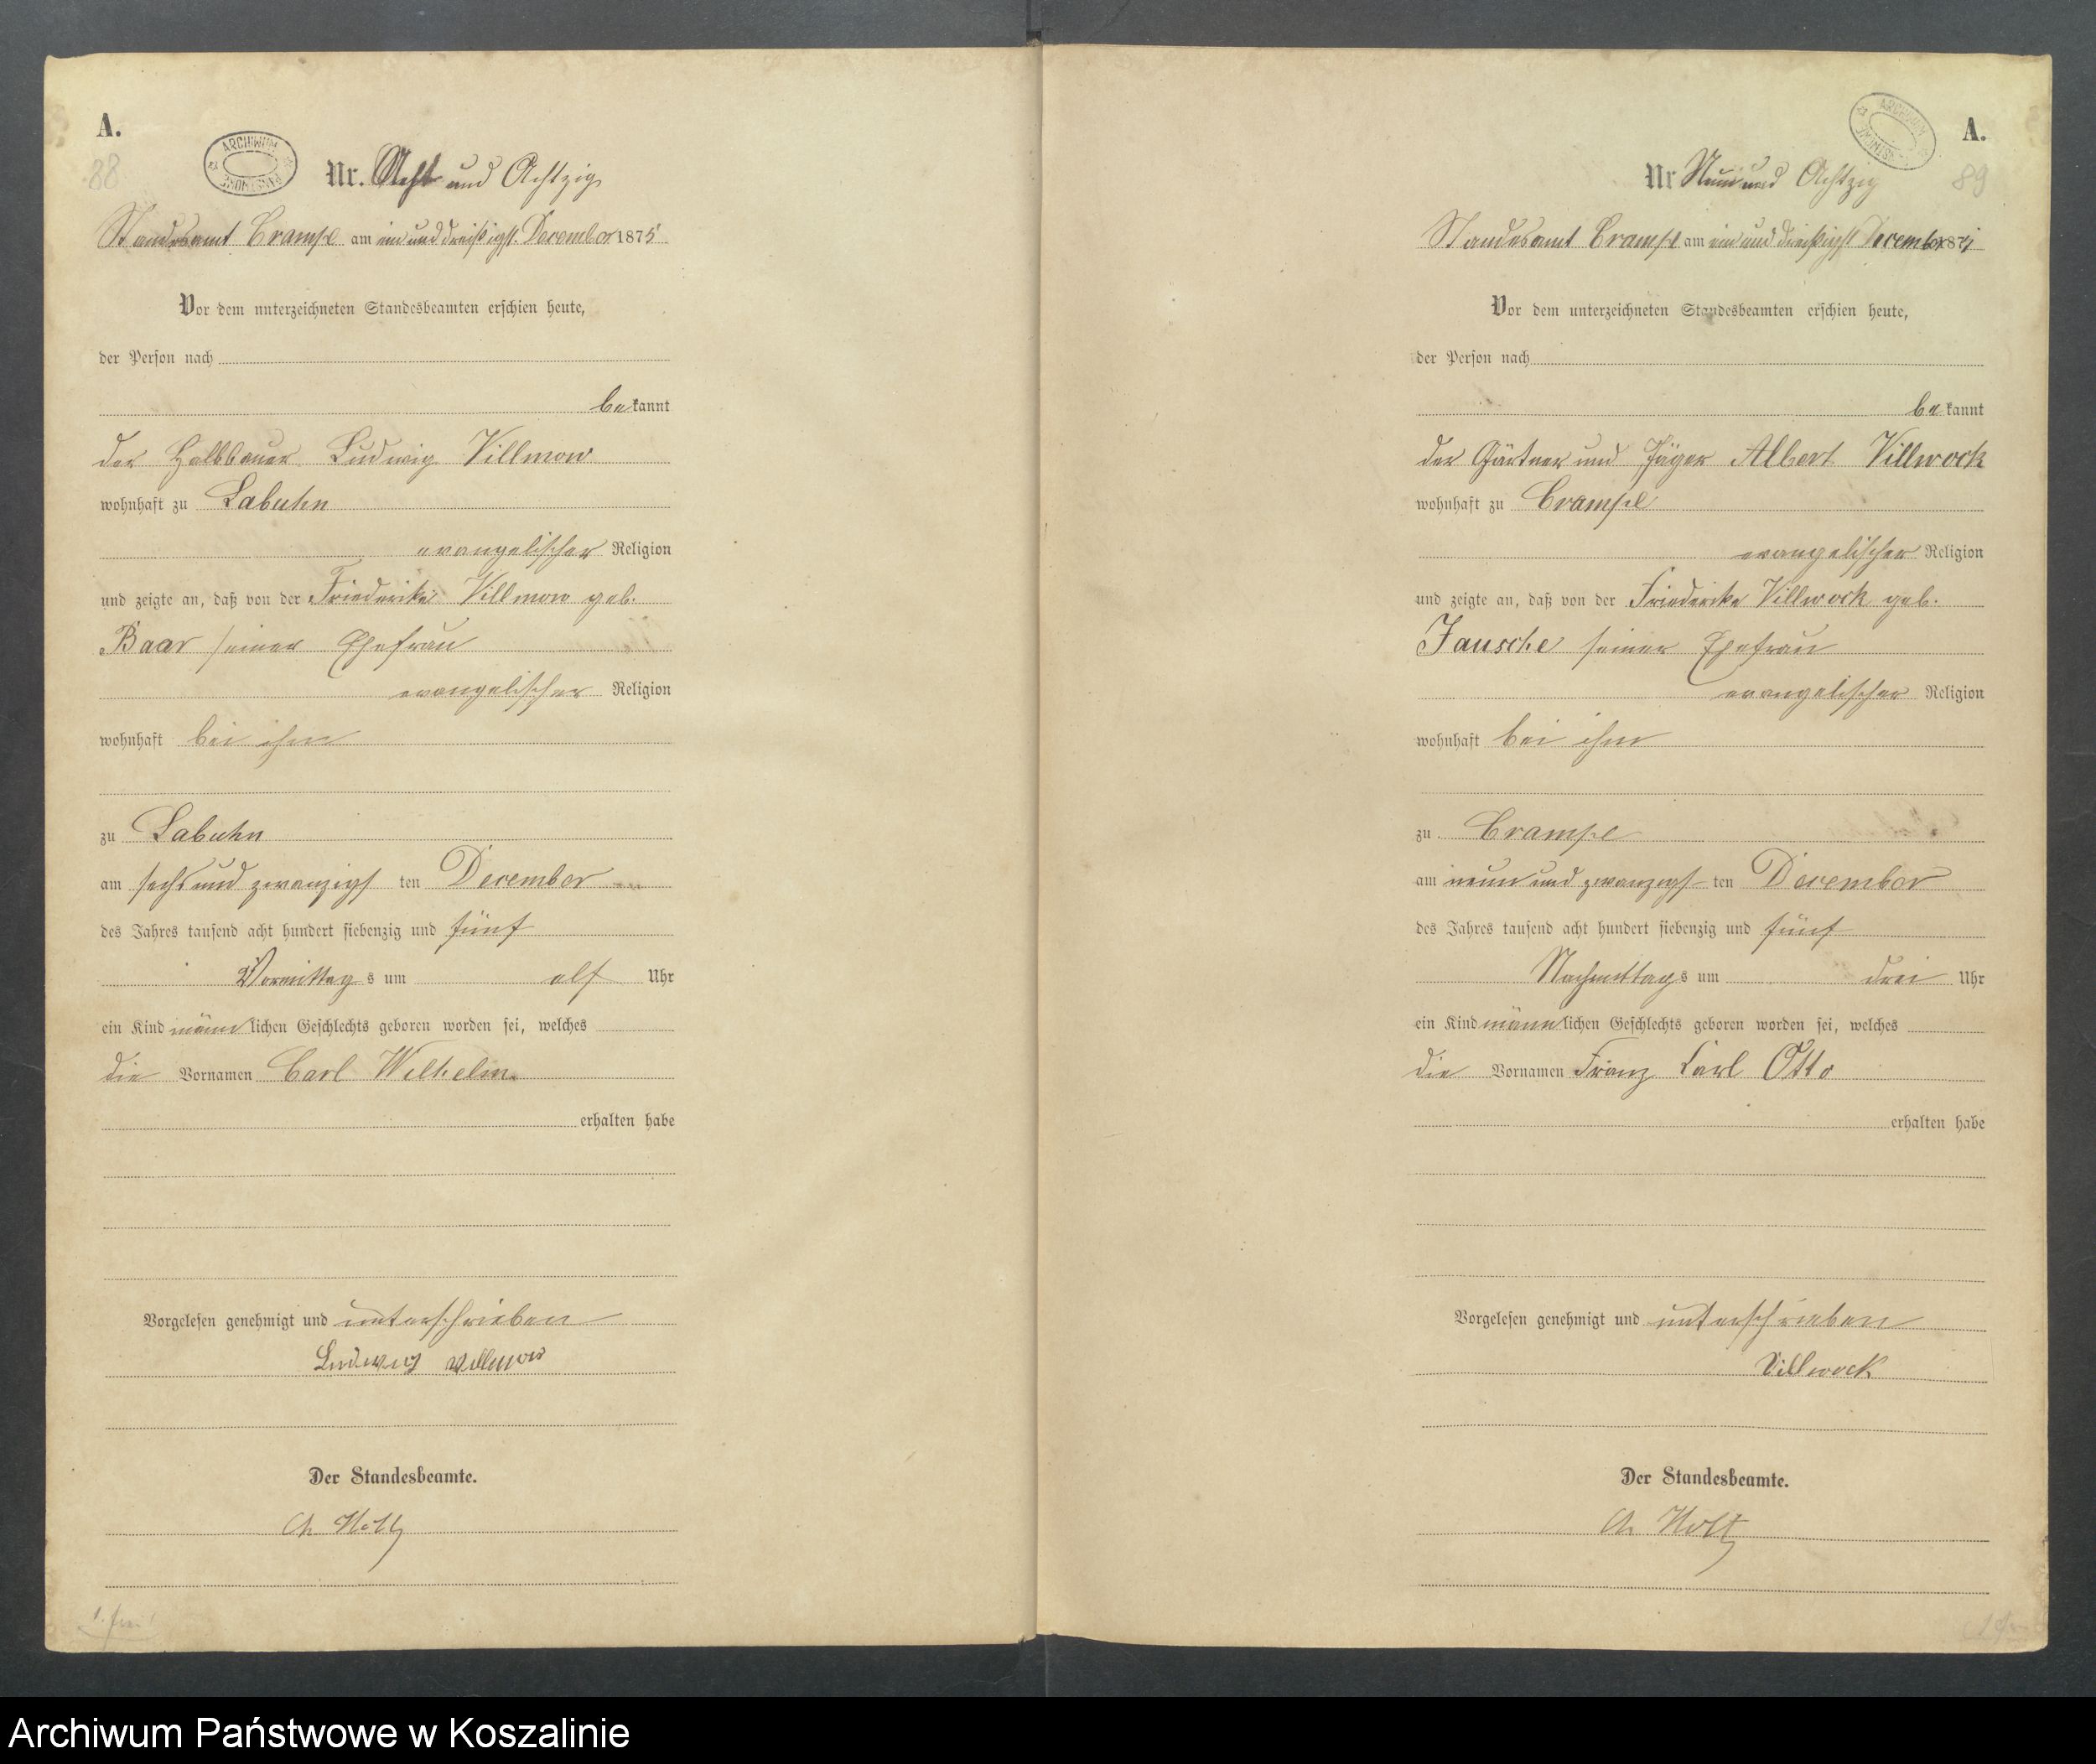 A.
88
ARCHIWUM PAŃSTWOWE
Nr. Acht und Achtzig
Standesamt Crampe am ein und dreißigst. December 1875
Vor dem unterzeichneten Standesbeamten erschien heute,
der Person nach
bekannt
der Halbbauer Ludwig Villmow
wohnhaft zu Labuhn
evangelischer Religion
und zeigte an, daß von der Friederike Villmow geb.
Baar seiner Ehefrau
evangelischer Religion
wohnhaft bei ihm
zu Labuhn
am sechs und zwanzigsten December
des Jahres tausend acht hundert siebenzig und fünf
Vormittags um elf Uhr
ein Kind männlichen Geschlechts geboren worden sei, welches
die Vornamen Carl Wilhelm
erhalten habe
Vorgelesen genehmigt und unterschrieben
Ludwig Villmow
Der Standesbeamte.
Holtz
A.
89
ARCHIWUM PAŃSTWOWE
Nr Neun und Achtzig
Standesamt Crampe am ein und dreißigst December 1875
Vor dem unterzeichneten Standesbeamten erschien heute,
der Person nach
bekannt
der Gärtner und Jäger Albert Villwock
wohnhaft zu Crampe
evangelischer Religion
und zeigte an, daß von der Friederike Villwock geb.
Jausche seiner Ehefrau
evangelischer Religion
wohnhaft bei ihm
zu Crampe
am neun und zwanzigsten December
des Jahres tausend acht hundert siebenzig und fünf
Nachmittags um drei Uhr
ein Kind männlichen Geschlechts geboren worden sei, welches
die Vornamen Franz Carl Otto
erhalten habe
Vorgelesen genehmigt und unterschrieben
Villwock
Der Standesbeamte.
Holtz
Archiwum Państwowe w Koszalinie